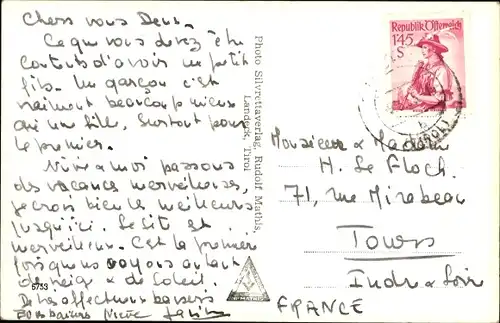 Chers vous Deux.
Ce que vous devez être
contents d'avoir un petit
fils. Un garçon c'est
vraiment beaucoup mieux
qu'une fille, surtout pour
le premier.
Vivie & moi passons
des vacances merveilleuses,
je crois bien les meilleures
jusqu'ici. Le site est
merveilleux. C'est la première
fois que nous voyons autant
de neige & de Soleil.
De très affectueux baisers
Bons baisers
Photo Silvrettaverlag, Rudolf Mathis,
Landeck, Tirol
5753
Republik Österreich
1'45
S
(TIROL)
Monsieur & Madame
H. Le Floch.
71, rue Mirabeau
Tours
Indre & Loire
FRANCE